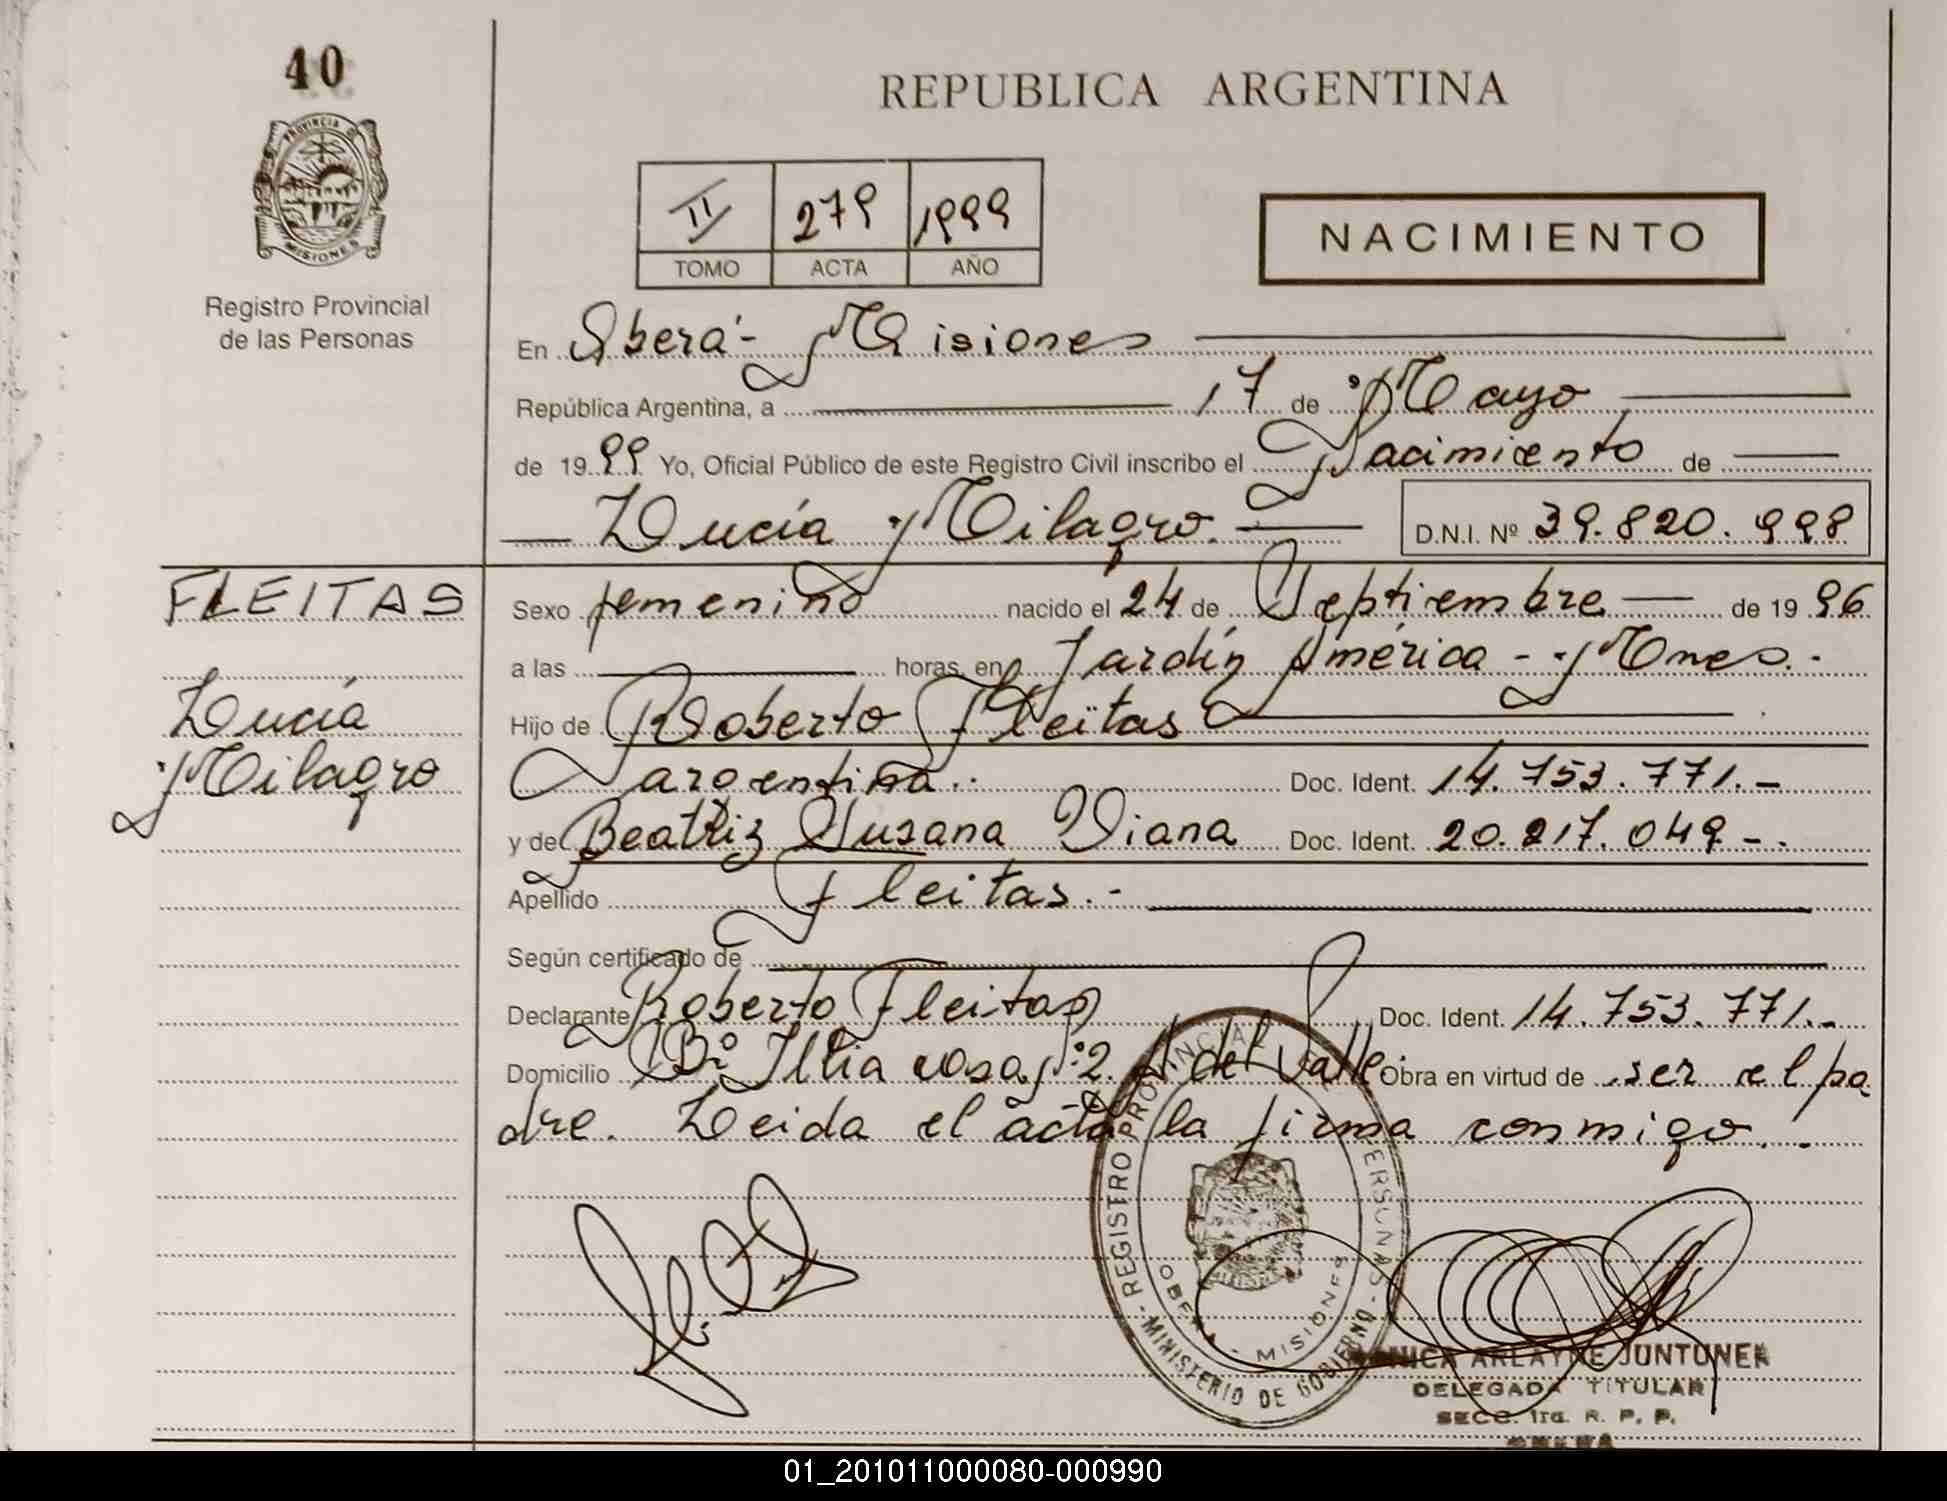 40
PROVINCIA DE
MISIONES
Registro Provincial
de las Personas
REPUBLICA ARGENTINA
II 279 1999
TOMO ACTA AÑO
NACIMIENTO
En Oberá - Misiones
República Argentina, a 17 de Mayo
de 1999 Yo, Oficial Público de este Registro Civil inscribo el Nacimiento de
Lucía Milagro. D.N.I. Nº 39.820.998
FLEITAS
Lucía
Milagro
Sexo femenino nacido el 24 de Septiembre de 1996
a las horas, en Jardín América - Mnes.-
Hijo de Roberto Fleitas
argentina.- Doc. Ident. 14.753.771.-
y de Beatriz Susana Viana Doc. Ident. 20.217.049-.
Apellido Fleitas.-
Según certificado de
Declarante Roberto Fleitas Doc. Ident. 14.753.771.-
Domicilio Bº Illia casa Nº 2. A. del Valle Obra en virtud de ser el pa
dre. Leida el acta la firma conmigo.-
REGISTRO PROVINCIAL PERSONAS
MINISTERIO DE GOBIERNO
OBERA - MISIONES
MONICA ARLAYNE JUNTUNEN
DELEGADA TITULAR
SECC. 1ra. R. P. P.
OBERA
01_201011000080-000990